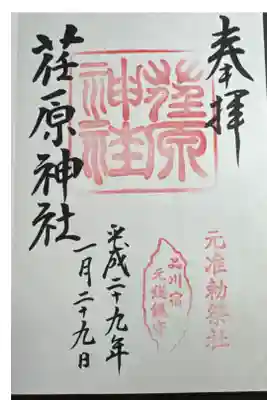 奉拝
元准勅祭社
荏原神社
品川宿
元鎮守
荏原神社
平成二十九年
一月二十九日